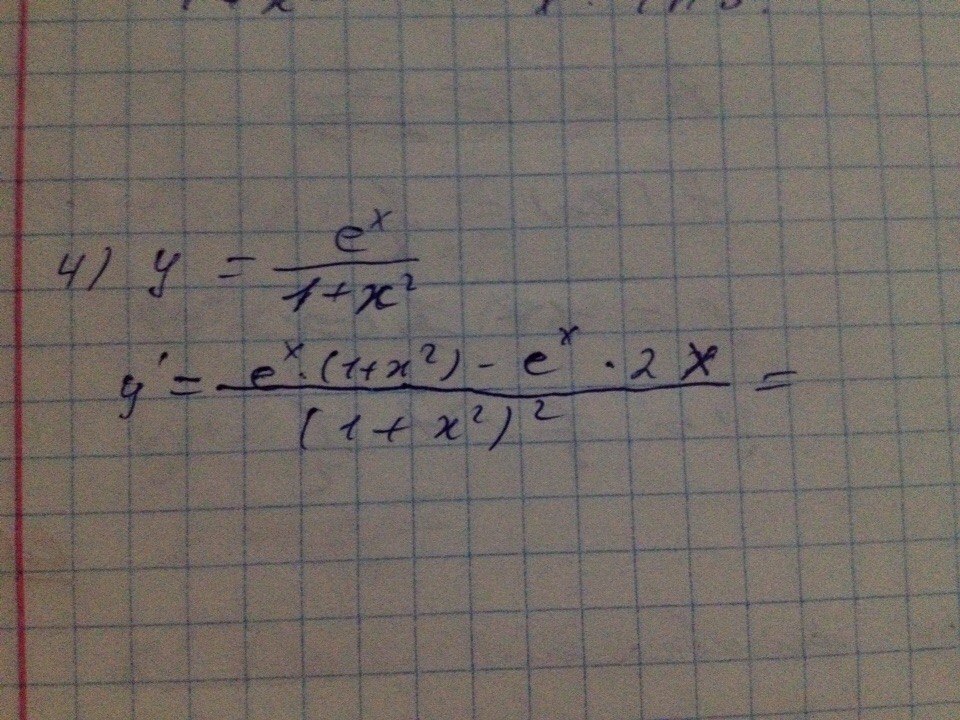 4) y = e^x / (1+x²)
y' = (e^x · (1+x²) - e^x · 2x) / (1+x²)² =